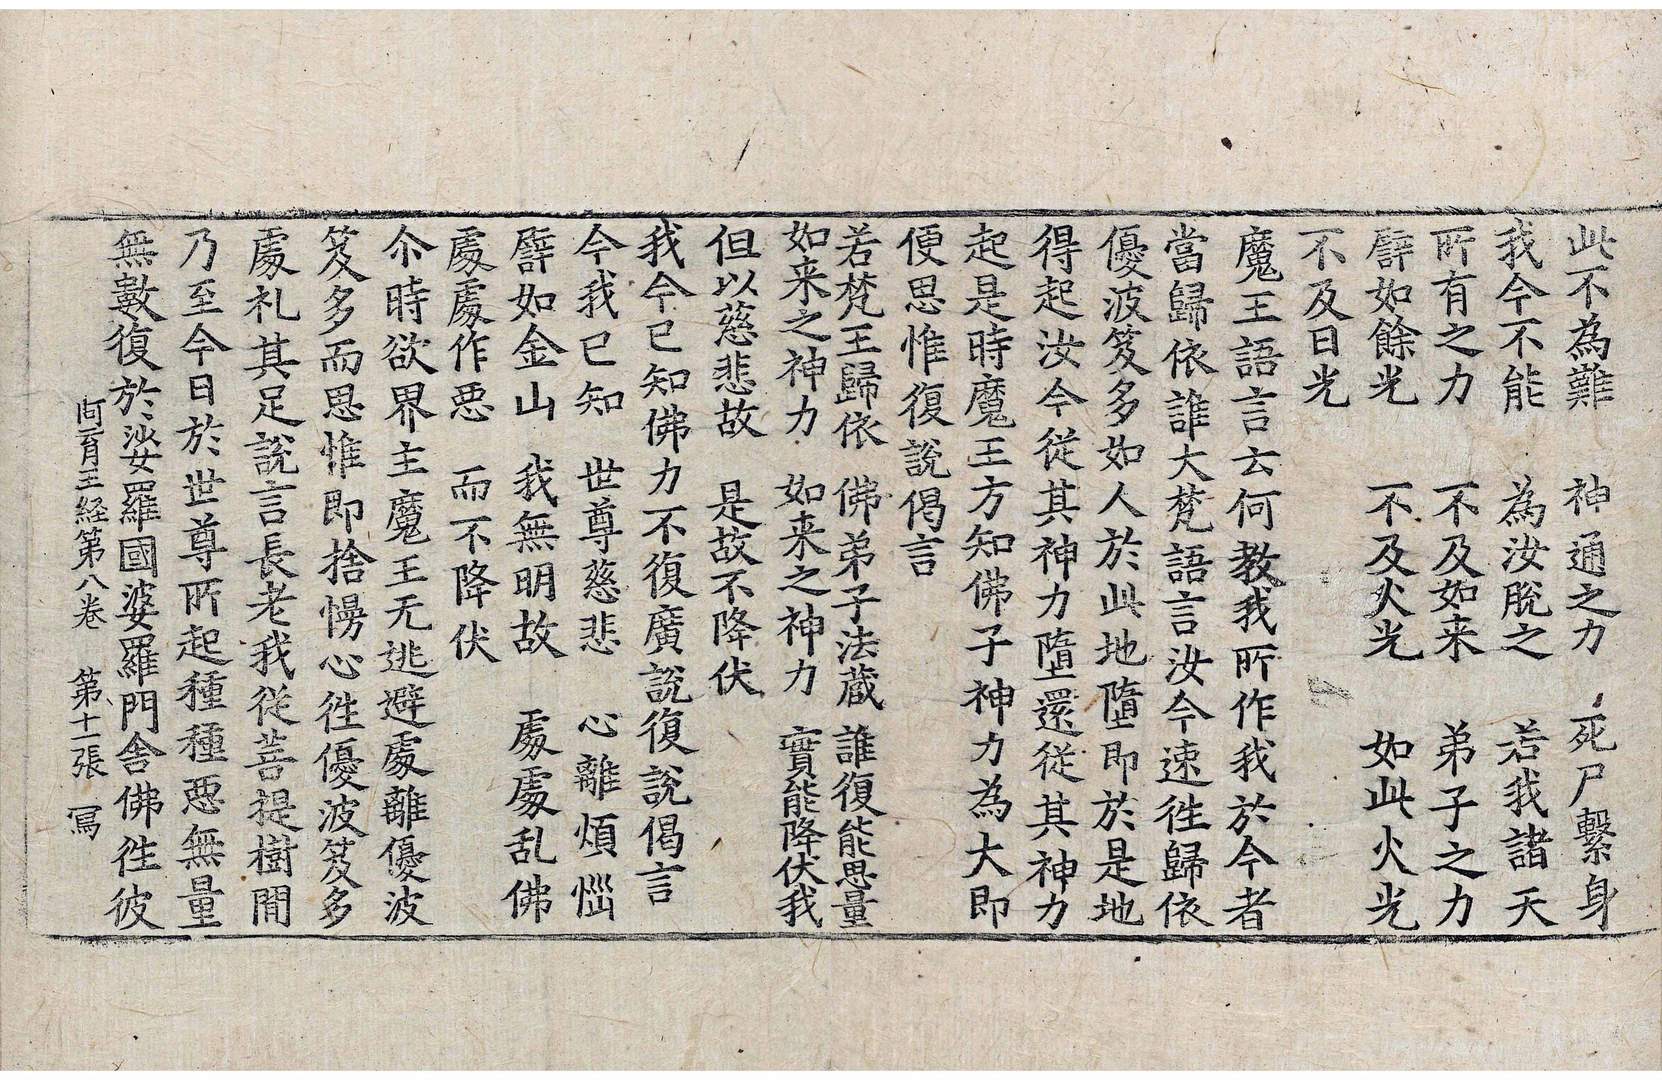 此不為難　神通之力　死尸繫身
我今不能　為汝脫之　若我諸天
所有之力　不及如来　弟子之力
譬如餘光　不及火光　如此火光
不及日光
魔王語言云何教我所作我於今者
當歸依誰大梵語言汝今速徃歸依
優波笈多如人於此地墮即於是地
得起汝今從其神力墮還從其神力
起是時魔王方知佛子神力為大即
便思惟復說偈言
若梵王歸依　佛弟子法蔵　誰復能思量
如来之神力　如来之神力　實能降伏我
但以慈悲故　是故不降伏
我今已知佛力不復廣說復說偈言
今我已知　世尊慈悲　心離煩惱
譬如金山　我無明故　處處乱佛
處處作恶　而不降伏
尒時欲界主魔王无逃避處離優波
笈多而思惟即捨慢心徃優波笈多
處礼其足說言長老我從菩提樹間
乃至今日於世尊所起種種恶無量
無數復於娑羅國婆羅門舍佛徃彼
阿育王経第八卷　第十一張　冩